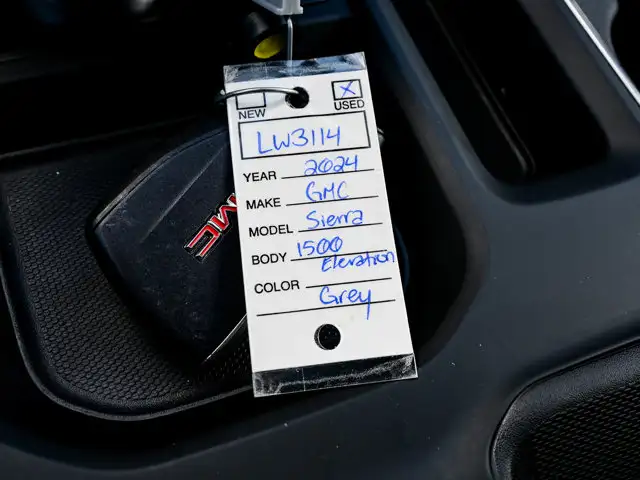 X
NEW USED
LW3114
YEAR 2024
MAKE GMC
MODEL Sierra
BODY 1500
Elevation
COLOR
Grey
GMC